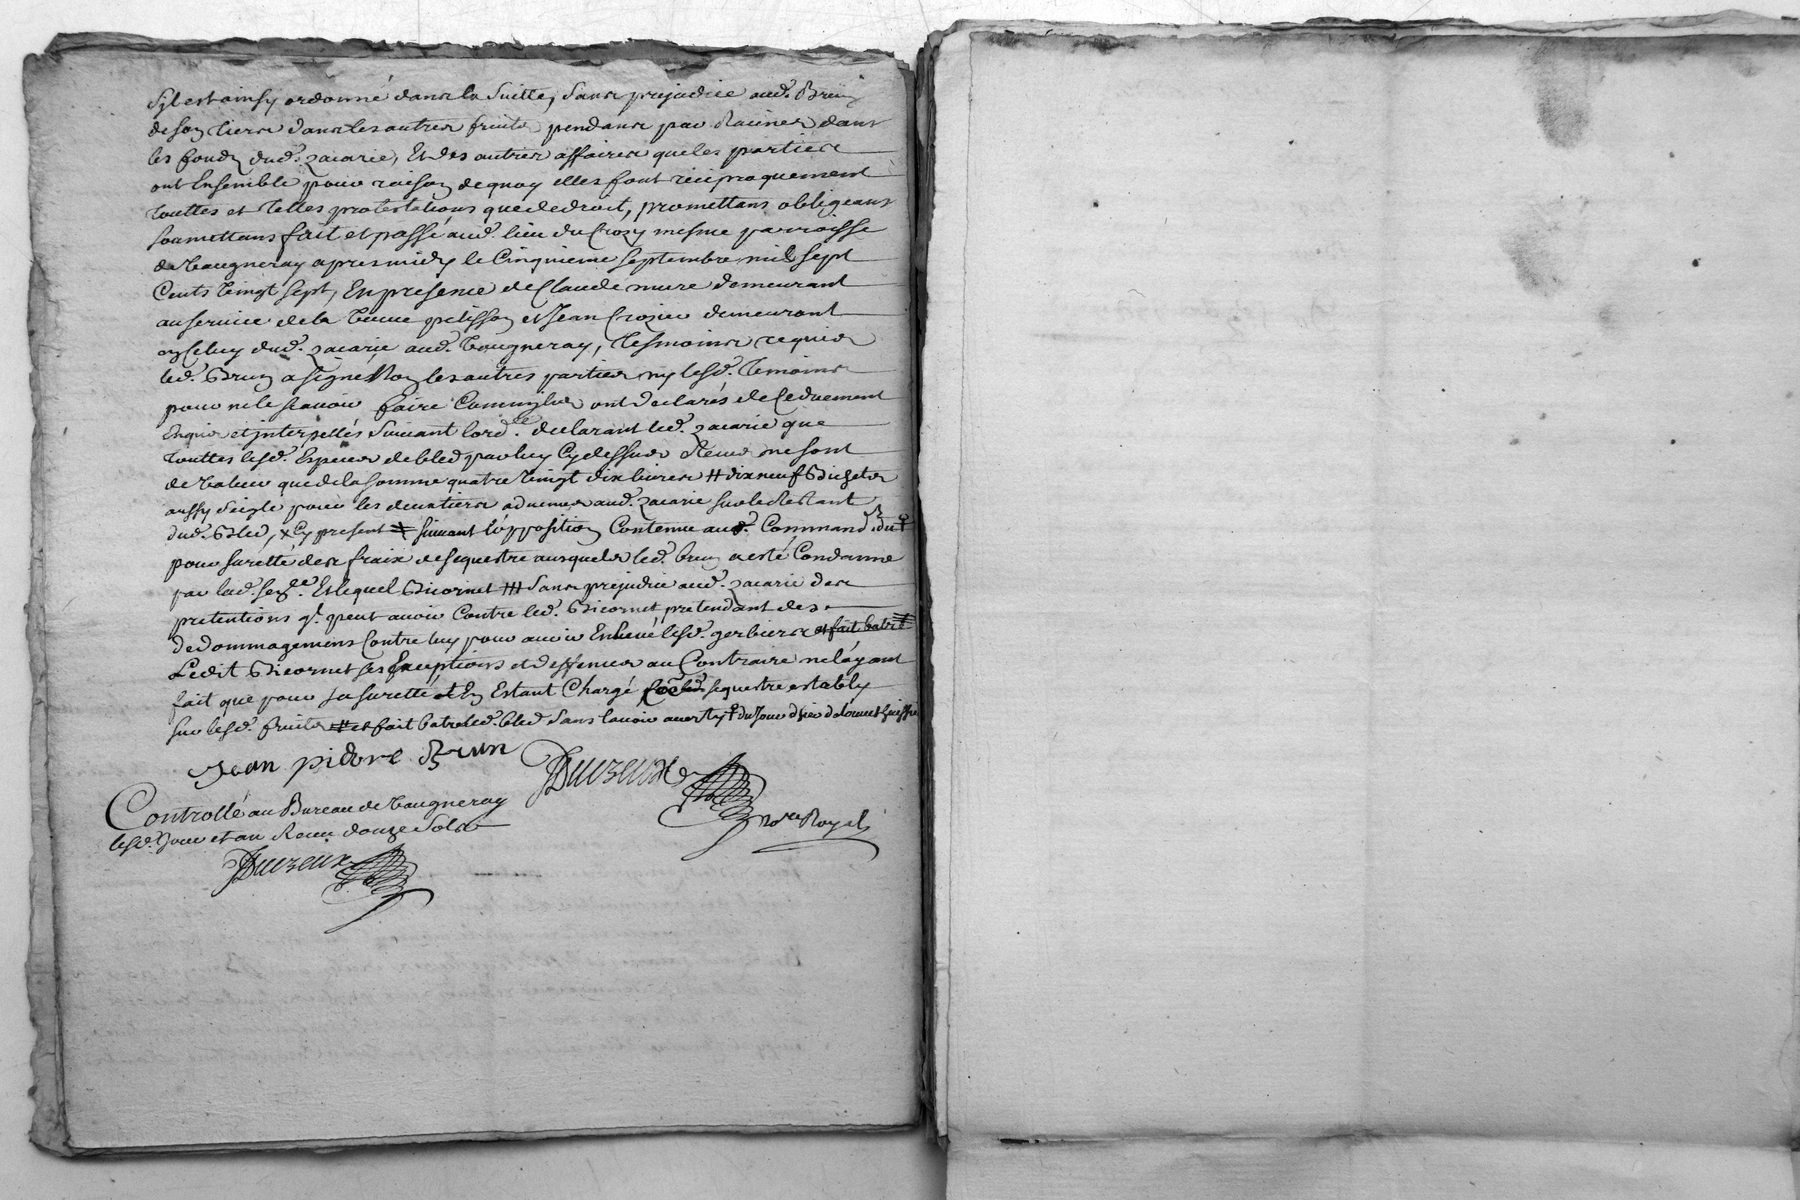 Sil est ainsy ordonné dans la suitte, sans prejudice aud. Brun
de son tiers dans les autres fruits pendans par racines dans
les fonds dud. zacarie, Et des autres affaires que les parties
ont Ensemble pour raison de quoy elles font reciproquement
touttes et telles protestations que de droit, promettans obligeans
soumettans fait et passé aud. lieu du Crozy mesme parroisse
de Vaugneray apres midy le Cinquieme septembre mil sept
Cents vingt sept, En presence de Claude mure demeurant
au service de la veuve pelisson et Jean Crozier demeurant
en Celuy dud. zacarie aud. Vaugneray, tesmoins requis
led. Brun a signé Non les autres parties ny lesd. temoins
pour ne le scavoir faire Comm'ilz ont declarés de Ce duement
Enquis et interpellés suivant lord.ce declarant led. zacarie que
touttes lesd. Especes de bled par luy Cy dessus Receu ne sont
de valeur que de la somme quatre vingt dix livres # dix neuf Bichets
aussy seigle pour les deux tiers advenus aud. zacarie sur le Restant
dud. Bled, x Cy present ≠ suivant l'opposition Contenue aud. Command.t du
pour suretté des fraix de sequestre ausquels led. brun a esté Condamné
par lad. sen.ce Et lequel Bicornet ⧻ sans prejudice aud. zacarie des
pretentions q'l peut avoir Contre led. Bicornet pretendant des
dedommagemens Contre luy pour avoir Enlevé lesd. gerbiers et fait batre
Ledit Bicornet ses Exceptions et deffences au Contraire ne l'ayant
fait que pour sa suretté et En Estant Chargé sequestre estably
sur lesd. fruits # et fait batre led. bled sans l'avoir averty
Jean pidere Brun
Duvzeux
No.re Royal
Controllé au Bureau de Vaugneray
lesd. Jour et an Receu douze Sols
Duvzeux